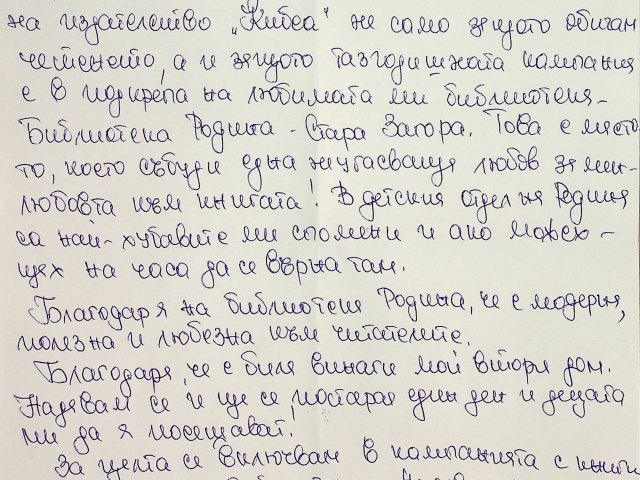 на издателство „Кибеа“ не само защото обичам
четенето, а и защото тазгодишната кампания
е в подкрепа на любимата ми библиотека -
Библиотека Родина - Стара Загора. Това е място
то, което събуди една неугасваща любов за мен -
любовта към книгата! В детския отдел на Родина
са най-хубавите ми спомени и ако можех -
щях на часа да се върна там.
Благодаря на библиотека Родина, че е модерна,
полезна и любезна към читателите.
Благодаря, че е била винаги мой втори дом.
Надявам се и ще се постарая един ден и децата
ми да я посещават.
За целта се включвам в кампанията с книги